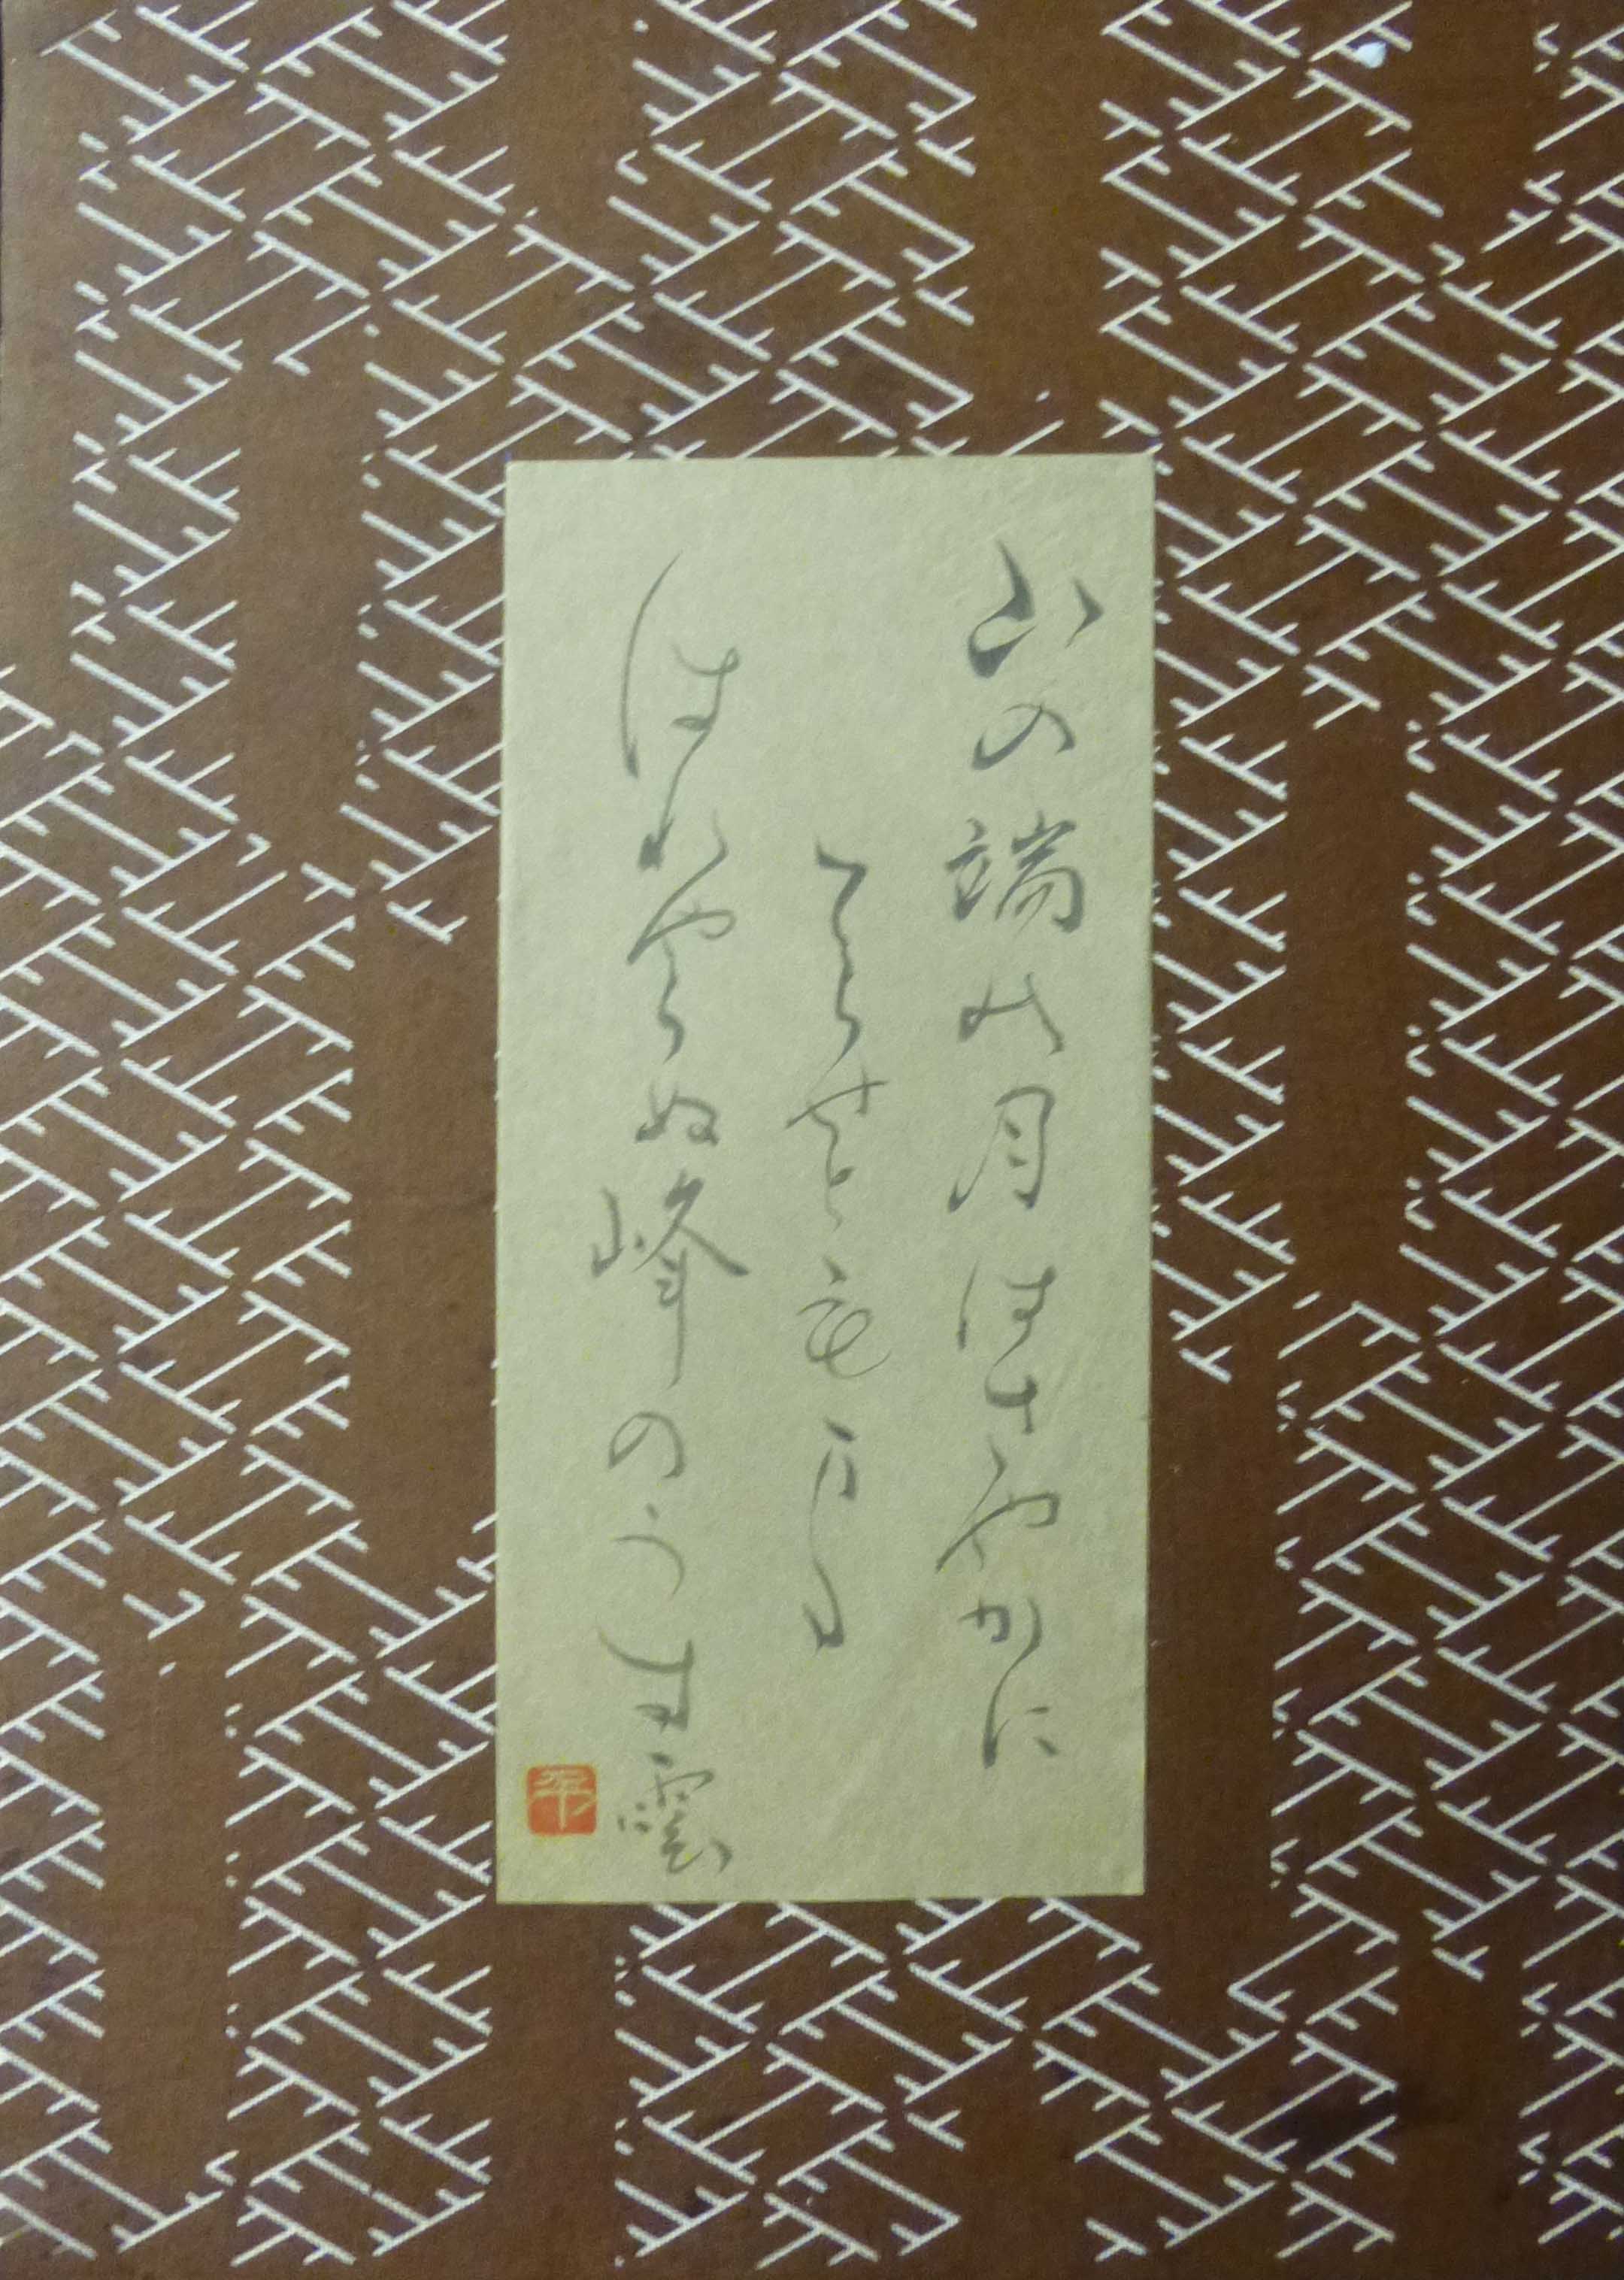 山の端の月はさやかに
てらせともまた
はれやらぬ峰のうす雲